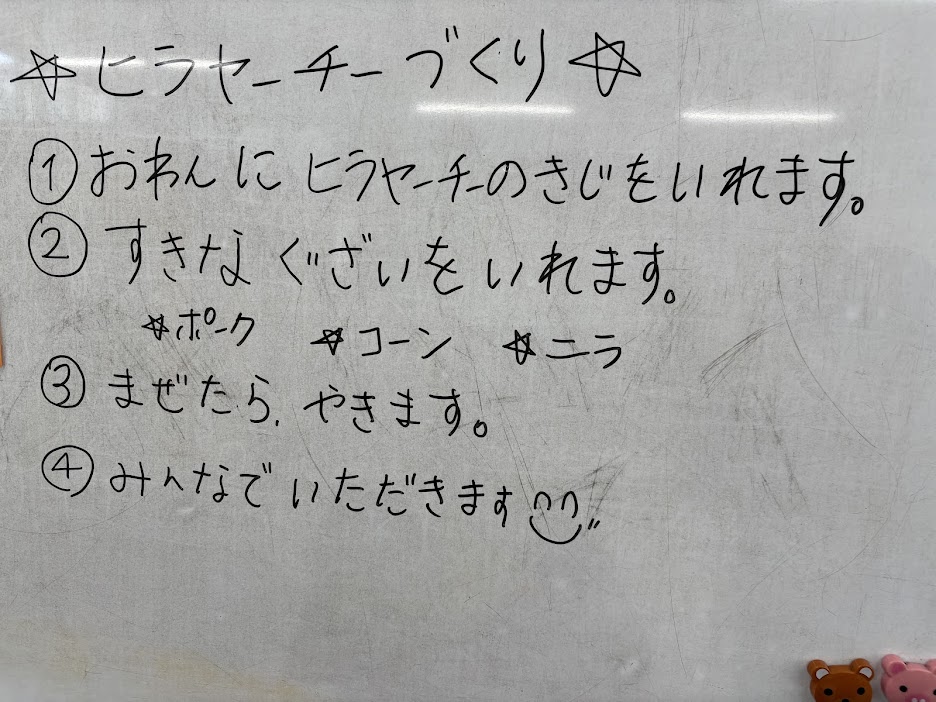 ☆ヒラヤーチーづくり☆
①おわんにヒラヤーチーのきじをいれます。
②すきなぐざいをいれます。
☆ポーク ☆コーン ☆ニラ
③まぜたら、やきます。
④みんなでいただきます